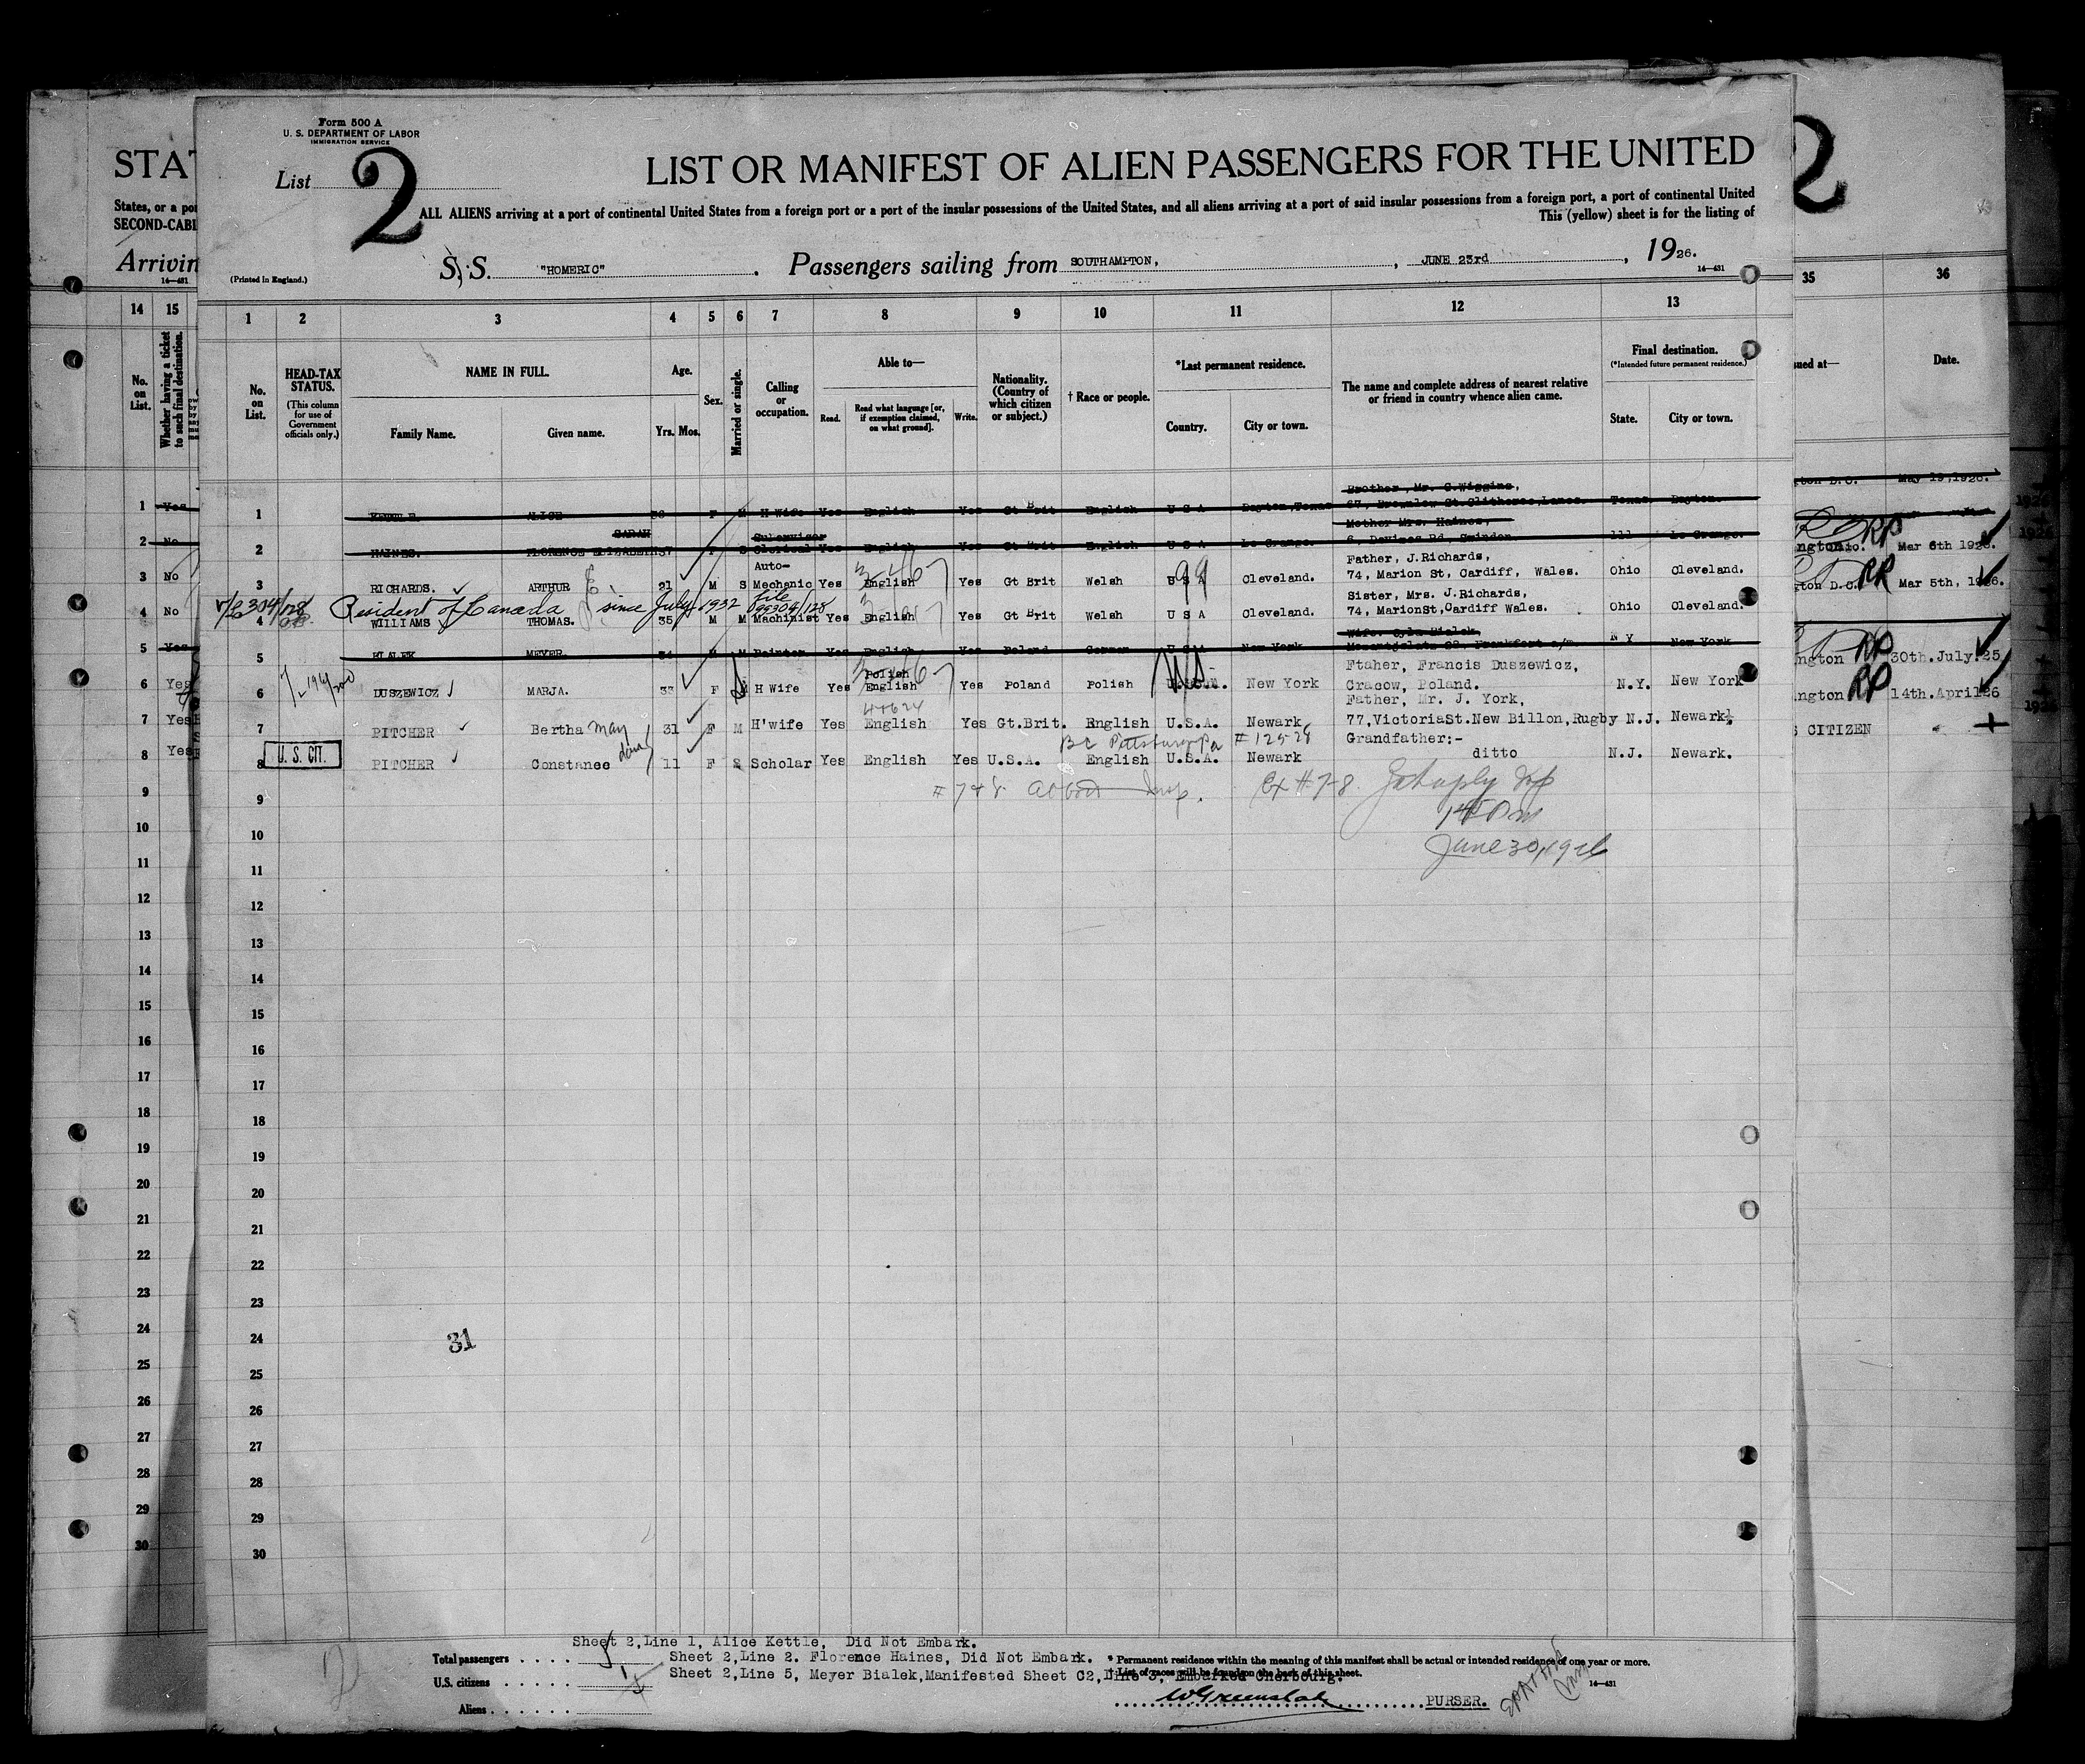 Form 500 A
U. S. DEPARTMENT OF LABOR
IMMIGRATION SERVICE
List 2
LIST OR MANIFEST OF ALIEN PASSENGERS FOR THE UNITED
ALL ALIENS arriving at a port of continental United States from a foreign port or a port of the insular possessions of the United States, and all aliens arriving at a port of said insular possessions from a foreign port, a port of continental United
This (yellow) sheet is for the listing of
(Printed in England.)
S. S. "HOMERIC" . Passengers sailing from SOUTHAMPTON, , JUNE 23rd , 1926.
14—431
STA
States, or a po
SECOND-CABI
Arrivin
14—431
2
1 2 3 4 5 6 7 8 9 10 11 12 13
14 15
35 36
No. on List.
HEAD-TAX STATUS.
(This column for use of Government officials only.)
NAME IN FULL.
Family Name.
Given name.
Age.
Yrs. Mos.
Sex.
Married or single.
Calling or occupation.
Able to—
Read.
Read what language [or, if exemption claimed, on what ground].
Write.
Nationality. (Country of which citizen or subject.)
† Race or people.
*Last permanent residence.
Country.
City or town.
The name and complete address of nearest relative or friend in country whence alien came.
Final destination.
(*Intended future permanent residence.)
State.
City or town.
No. on List.
Whether having a ticket to such final destination.
sued at—
Date.
Brother, Mr. G.Wiggins,
1 KETTLE ALICE 36 F M H Wife Yes English Yes Gt Brit English U S A Dayton, Texas 67, Brownlow St. Clitheroe, Lancs. Texas. Dayton.
SARAH Supervisor Mother Mrs. Haines,
2 HAINES. FLORENCE ELIZABETH 37 F S Clerical Yes English Yes Gt Brit English U S A La Grange. 6, Devizes Rd, Swindon. Ill La Grange.
Auto- Father, J.Richards,
3 RICHARDS. ARTHUR 21 M S Mechanic Yes English Yes Gt Brit Welsh U S A Cleveland. 74, Marion St, Cardiff, Wales. Ohio Cleveland.
Resident of Canada since July 1932 file 99304/128
Sister, Mrs. J.Richards,
4 WILLIAMS THOMAS. 35 M M Machinist Yes English Yes Gt Brit Welsh U S A Cleveland. 74, MarionSt, Cardiff Wales. Ohio Cleveland.
5 BIALEK MEYER. 34 M M Painter Yes English Yes Poland German U S A New York N Y New York
Polish Ftaher, Francis Duszewicz,
6 DUSZEWICZ MARJA. 33 F H Wife Yes English Yes Poland Polish New York Cracow, Poland. N.Y. New York
Father, Mr. J. York,
7 PITCHER Bertha May 31 F M H'wife Yes English Yes Gt.Brit. English U.S.A. Newark 77,VictoriaSt.New Billon,Rugby N.J. Newark
BC Pittsburg Pa # 125-28 Grandfather:-
8 U. S. CIT. PITCHER Constance 11 F S Scholar Yes English Yes U.S.A. English U.S.A. Newark ditto N.J. Newark.
# 7 & 8 Insp. # 7-8
June 30, 1926
9
10
11
12
13
14
15
16
17
18
19
20
21
22
23
24
25
26
27
28
29
30
31
1 Yes
2 No
3 No
4 No
5 Yes
6 Yes
7 Yes
8 Yes
9
10
11
12
13
14
15
16
17
18
19
20
21
22
23
24
25
26
27
28
29
30
gton D.C. May 19, 1926.
RP Mar 6th 1926.
ton D.C. RR Mar 5th, 1926.
ngton RP 30th.July.25
ngton RP 14th.April26
S CITIZEN
Sheet 2,Line 1, Alice Kettle, Did Not Embark.
Total passengers . . . . 5 Sheet 2,Line 2. Florence Haines, Did Not Embark.
* Permanent residence within the meaning of this manifest shall be actual or intended residence of one year or more.
U.S. citizens . . . . . . 1 Sheet 2,Line 5, Meyer Bialek,Manifested Sheet C2,Line 3, Embarked Cherbourg.
† List of races will be found on the back of this sheet.
Aliens . . . . . .
PURSER.
14—431